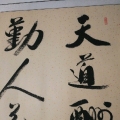 天道酬
勤人